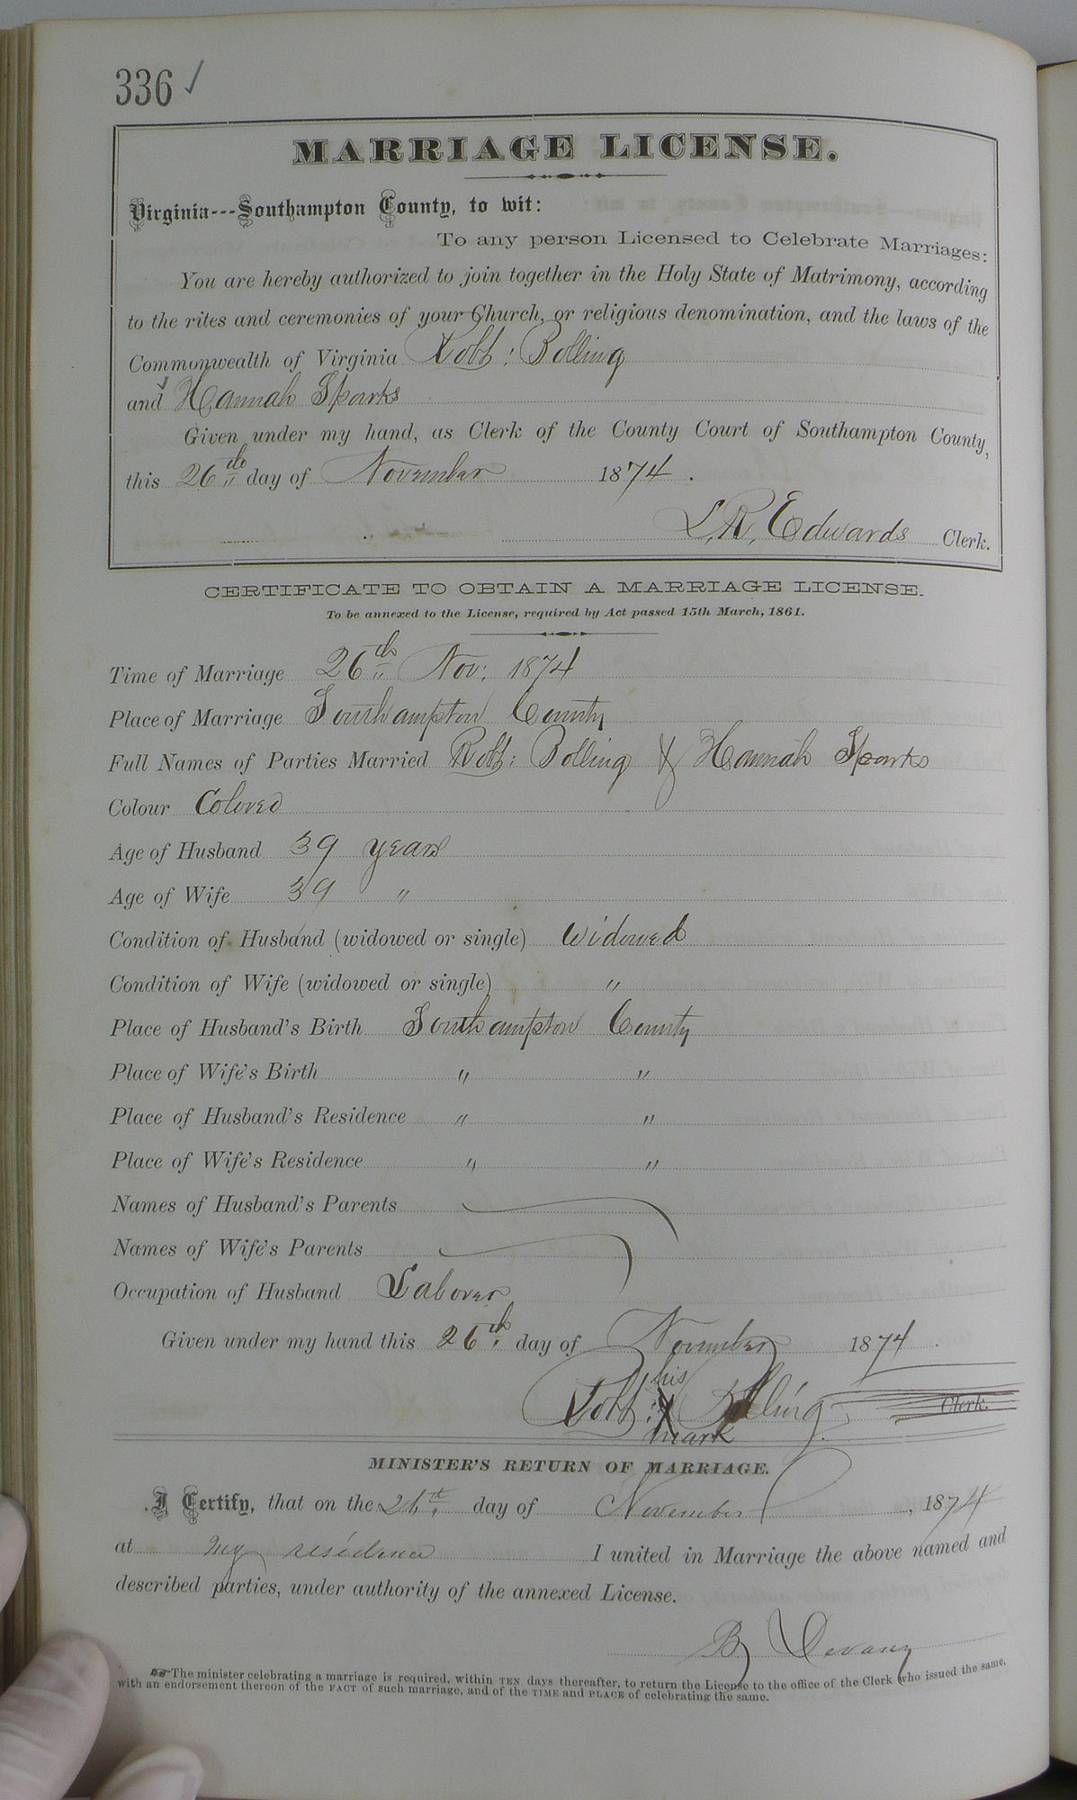 336 ✓
MARRIAGE LICENSE.
Virginia---Southampton County, to wit:
To any person Licensed to Celebrate Marriages:
You are hereby authorized to join together in the Holy State of Matrimony, according
to the rites and ceremonies of your Church, or religious denomination, and the laws of the
Commonwealth of Virginia Robt: Bolling
and Hannah Sparks
Given under my hand, as Clerk of the County Court of Southampton County,
this 26th day of November 1874.
L. R. Edwards Clerk.
CERTIFICATE TO OBTAIN A MARRIAGE LICENSE.
To be annexed to the License, required by Act passed 15th March, 1861.
Time of Marriage 26th Nov: 1874
Place of Marriage Southampton County
Full Names of Parties Married Robt: Bolling & Hannah Sparks
Colour Colored
Age of Husband 39 years
Age of Wife 39 "
Condition of Husband (widowed or single) Widowed
Condition of Wife (widowed or single) "
Place of Husband's Birth Southampton County
Place of Wife's Birth " "
Place of Husband's Residence " "
Place of Wife's Residence " "
Names of Husband's Parents
Names of Wife's Parents
Occupation of Husband Laborer
Given under my hand this 26th day of November 1874.
his
Robt: X Bolling Clerk.
mark
MINISTER'S RETURN OF MARRIAGE.
I Certify, that on the 26th day of November, 1874
at my residence I united in Marriage the above named and
described parties, under authority of the annexed License.
B Devany
The minister celebrating a marriage is required, within TEN days thereafter, to return the License to the office of the Clerk who issued the same,
with an endorsement thereon of the FACT of such marriage, and of the TIME and PLACE of celebrating the same.